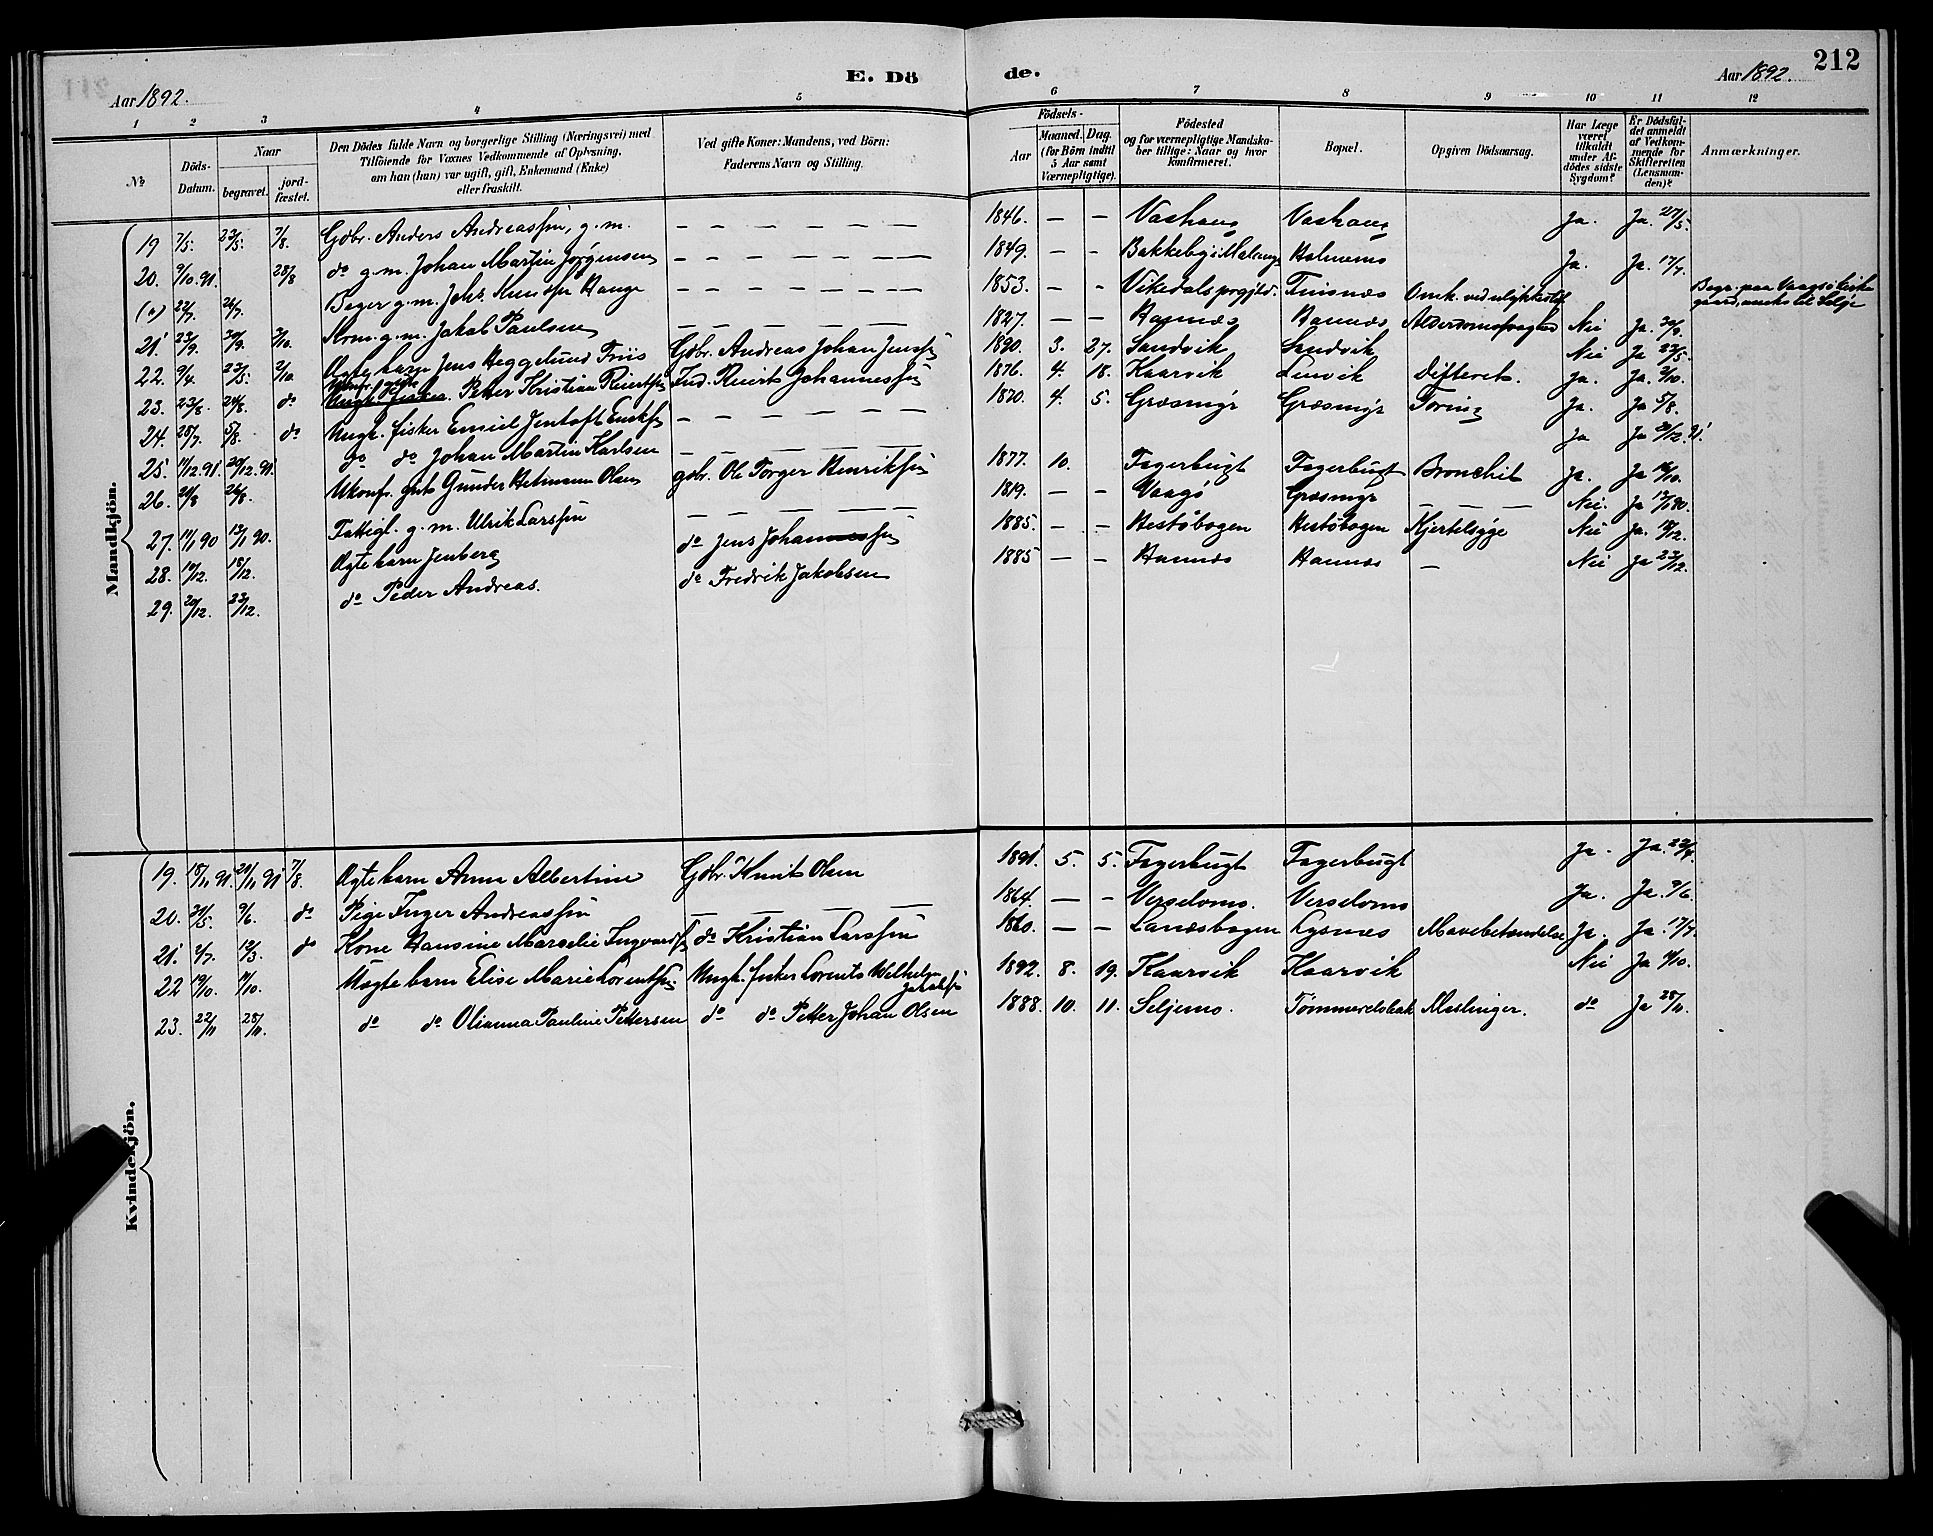 212
Aar 1892.
E. Dö
de.
Aar 1892.
1 2 3 4 5 6 7 8 9 10 11 12
No
Döds-Datum.
Naar
begravet.
jordfæstet.
Den Dödes fulde Navn og borgerlige Stilling (Næringsvei) med
Tilföiende for Voxnes Vedkommende af Oplysning,
om han (hun) var ugift, gift, Enkemand (Enke)
eller fraskilt.
Ved gifte Koner: Mandens, ved Börn:
Faderens Navn og Stilling.
Födsels-
Aar
Maaned. Dag.
(for Börn indtil
5 Aar samt
Værnepligtige).
Födested
og for værnepligtige Mandskaber tillige: Naar og hvor
konfirmeret.
Bopæl.
Opgiven Dödsaarsag.
Har Læge været tilkaldt under Afdödes sidste Sygdom?
Er Dödsfaldet anmeldt af Vedkommende for Skifteretten (Lensmanden)?
Anmærkninger.
Mandkjön.
19 7/5. 23/5. 7/8. Gdbr. Anders Andreassen, g. m. — — — — — 1846. — — Vashaug Vashaug Ja. Ja. 27/5.
20. 9/10.91. 28/8 do g. m. Johan Martin Jørgensen — — — — — 1849. — — Bakkeby i Malang Holmenes Ja. Ja. 17/7.
(0) 22/7. 24/7. g. m. Johs. Knudsen Hauge — — — — — 1853. — — Vikedals prgjld. Finsnæs Omk. ved ulykkestilf Begr. paa Vaagsø kirkegaard, annekx til Selje
21. 23/9. 30/9. 2/10. g. m. Jakob Paulsen — — — — — 1827. — — Hannæs Hannæs Alderdomssvaghed Nei Ja. 30/9.
22. 9/4. 23/5. 2/10. Ægte barn Jens Heggelund Friis Gdbr. Andreas Johan Jenssen 1890. 3. 27. Sandvik Sandvik Nei Ja 23/5.
23. 23/8. 24/8. do Petter Kristian Reiertsen Ind. Reiert Johannessen 1876. 4. 18. Kaarvik Lenvik Difterit. Ja. Ja. 2/10.
24. 28/7. 5/8. do Ungk. fisker Emiel Jentoft — — — — 1870. 4. 5. Græsmyr Græsmyr Ja. Ja 5/8.
25. 11/12.91. 20/12.91. do do Johan Martin Karlsen — — — — — Ja Ja 31/12.91.
26. 20/8 26/8. Ukonf. gut Gunder Hetmann Olsen gdbr. Ole Torger Henriksen 1877. 10. Fagerbugt Fagerbugt Bronchit Ja. Ja 10/10.
27. 11/1 90 13/1 90. Fattigl. g. m. Ulrik Larssen — — — — — 1819. — — Vaagö Græsmyr — — — Nei. Ja 13/1 90.
28. 10/12. 18/12. Ægte barn Jenberg do Jens Johannessen 1885. — — Hestøbogen Hestøbogen Kjertelsyge Nei Ja. 18/12.
29. 20/12. 23/12. do Peder Andreas. do Fredrik Jakobsen 1885 — — Hannæs Hannæs — Nei Ja 23/12.
Kvindekjön.
19. 18/11 91 20/11 91 7/8. Ægte barn Anna Albertine Gdbr. Knut Olsen 1891. 5. 5. Fagerbugt Fagerbugt Ja. Ja. 29/7.
20. 31/5. 9/6. do Pige Inger Andreassen — — — — — 1864. — — Ja. Ja. 9/6.
21. 2/7. 12/3. do Kone Hansine Marselie do Kristian Larssen 1860. — — Landsbogen Lysnes Mavebetændelse Ja. Ja. 17/7.
22 10/10. 11/10. Uægte barn Elise Marie Lorentsen Ungk. fisker Lorents Wilhelm Jakobsen 1892. 8. 19. Kaarvik Kaarvik Nei Ja 11/10.
23. 22/11 28/11. do do Olianna Pauline Pettersen do do Petter Johan Olsen 1888. 10. 11. Seljemo. Mæslinger. do Ja 28/11.